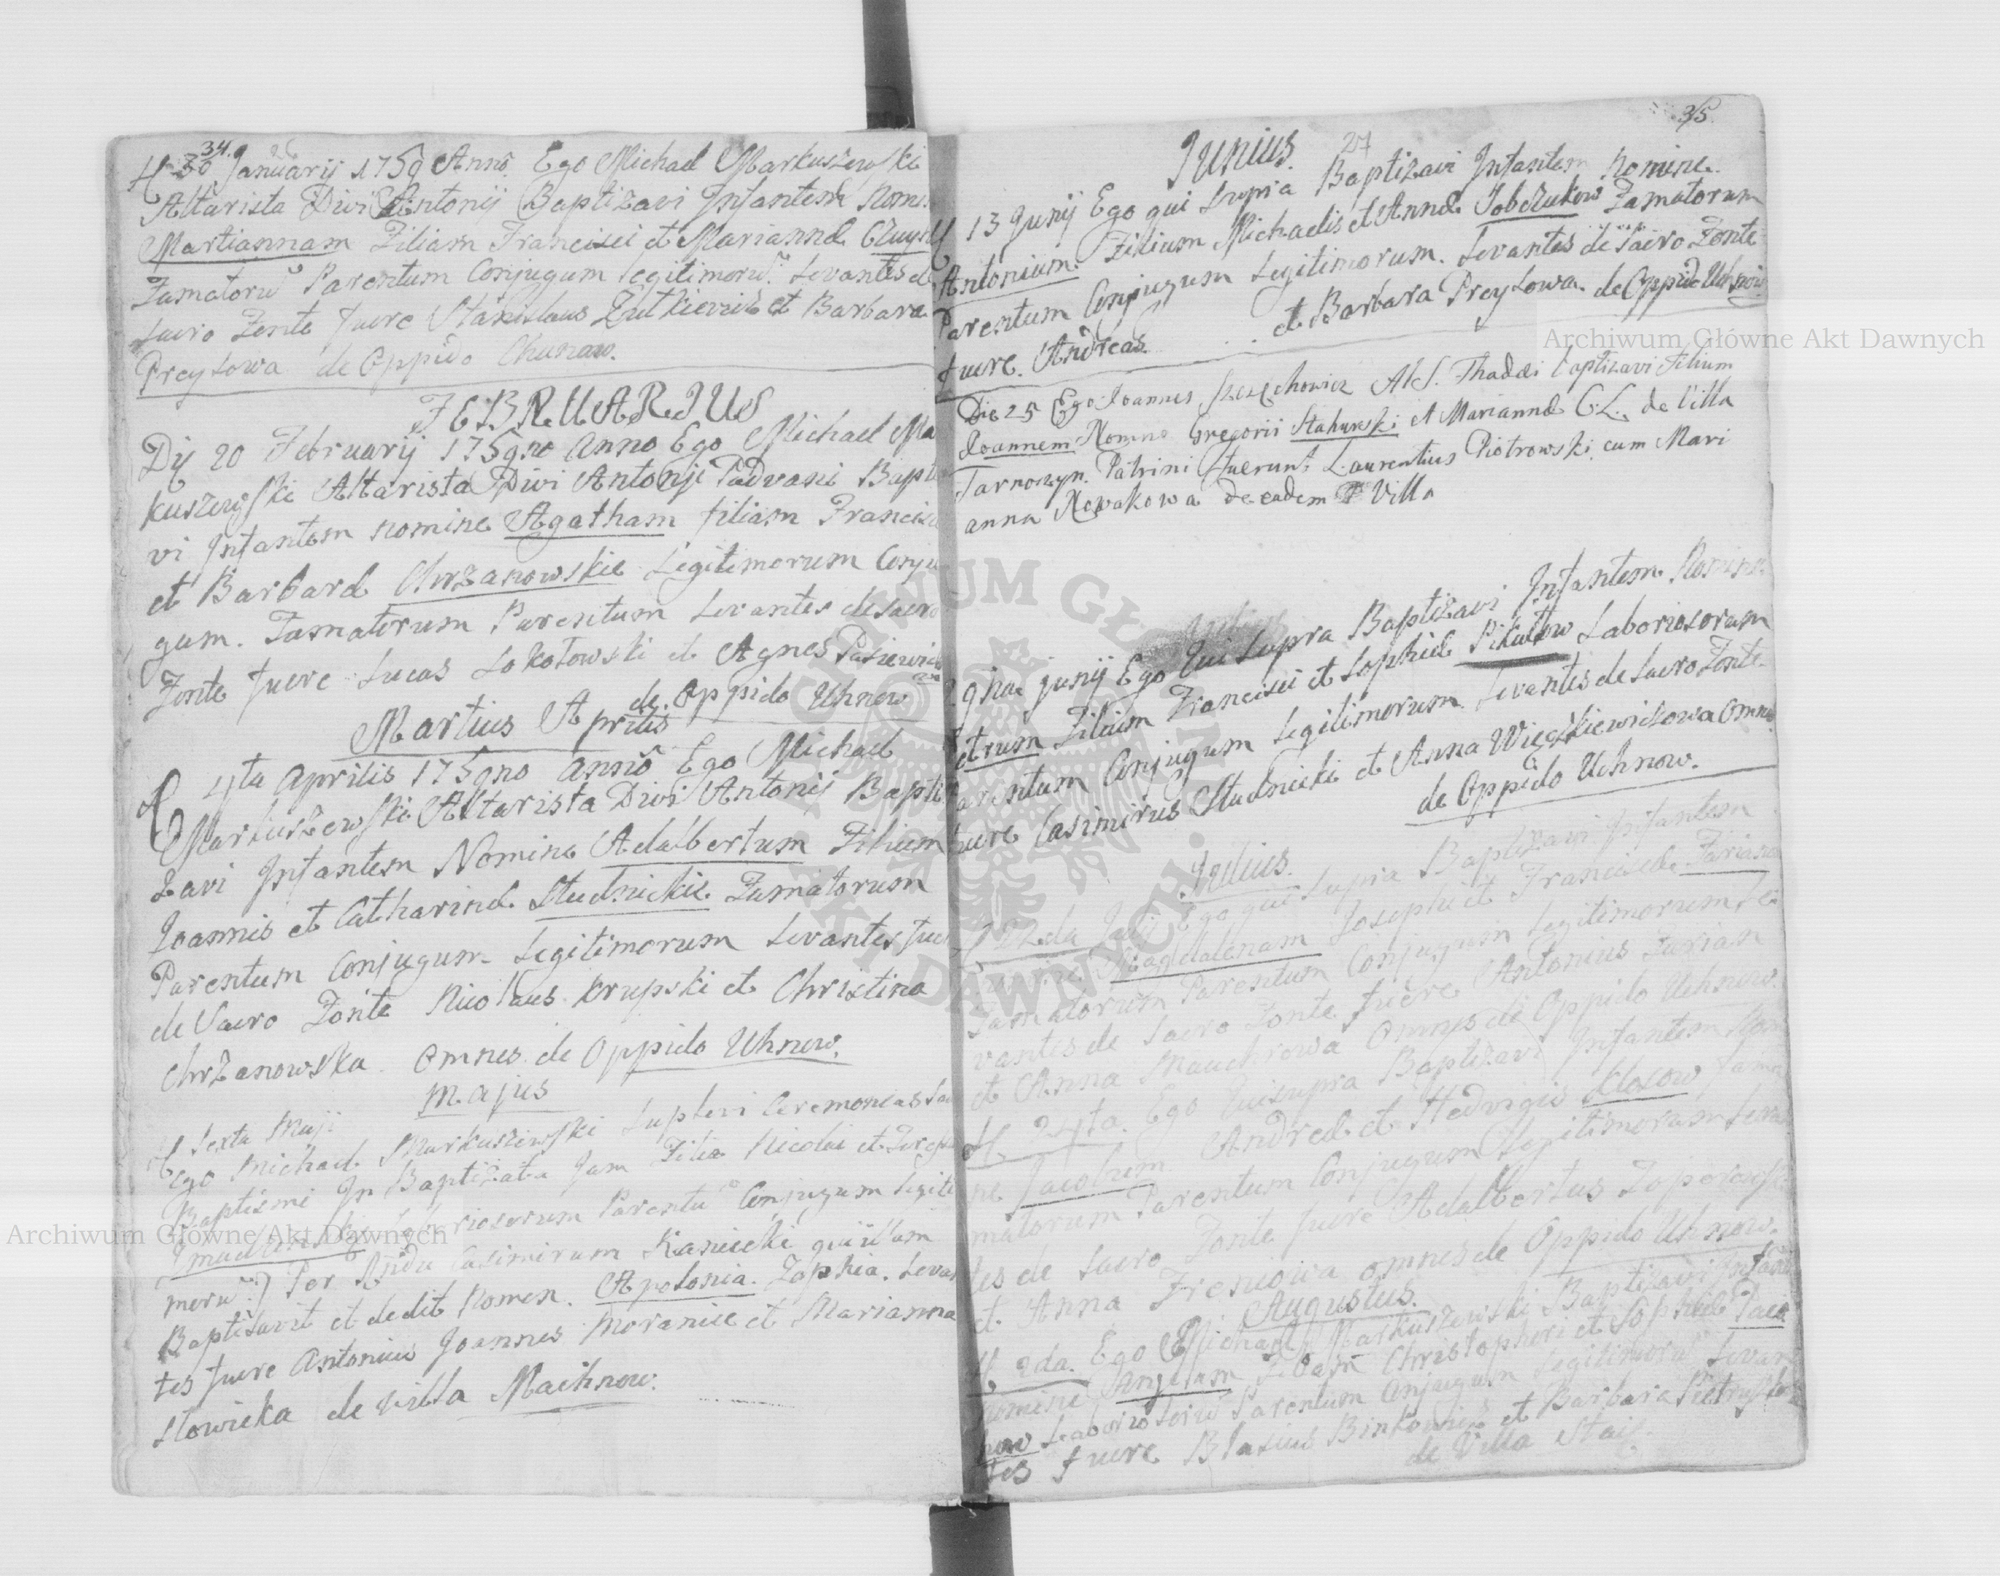 34.
30 Januarij 1759 Anno. Ego Michael Markuszewski
Altarista Divi Antonij Baptizavi Infantem Nomi
Martiannam Filiam Francisci et Mariannæ
Famatorũ Parentum Conjugum legitimorũ. Levantes de
Sacro Fonte fuere Stanislaus Zutkievicz et Barbara
Preysowa de Oppido Chunow.
FEBRUARIUS
Dij 20 Februarij 1759no Anno Ego Michael Ma
kuszewski Altarista Divi Antonij Padvani Bapti
vi Infantem nomine Agatham filiam Francisci
et Barbaræ Chrzanowskie Legitimorum Conju
gum. Famatorum Parentum Levantes de sacro
Fonte fuere Lucas Sokotowski et Agnes
de Oppido Uhnow
Martius Aprilis
4ta Aprilis 1759no Anno Ego Michael
Markuszewski Altarista Divi Antonij Bapti
zavi Infantem Nomine Adalbertum Filium
Joannis et Catharinæ Studnickie Famatorum
Parentum Conjugum Legitimorum Levantes fue
de Sacro Fonte Nicolaus Krupski et Christina
Chrzanowska. Omnes de Oppido Uhnow.
Majus
Sexta Maji
Ego Michael Markuszewski Suplevi Ceremoneas Sa
Baptismi In Baptizata Jam Filia Nicolai et
Laboriosorum Parentũ Conjugum Legiti
morũ) Per Casimirum Kaniecki qui illam
Baptisavit et dedit Nomen. Apolonia. Zophia. Levan
tes fuere Antonius Joannes Moraniec et Marianna
Slowicka de villa Machnow.
35
27
Junius.
13 Junij Ego qui Supra Baptizavi Infantem Nomine
Antonium Filium Michaelis et Annæ Sobczukow Famatorum
Parentum Conjugum Legitimorum. Levantes de Sacro Fonte
fuere. Andreas et Barbara Preysowa. de Oppido Uhnow
Die 25 Ego Joannes Alt S. Thaddæi baptizavi Filium
Joannem Nomine Gregorii Stahurski et Mariannæ C.L. de Villa
Tarnoszyn. Patrini fuerunt Laurentius Piotrowski cum Mari
anna Nowakowa de eadem Villa
29na junij Ego Qui Supra Baptizavi Infantem Nomine
Petrum Filium Francisci et Sophiæ Pikutow Laboriosorum
Parentum Conjugum Legitimorum Levantes de Sacro Fonte
fuere Casimirus Studnicki et Anna Omnes
de Oppido Uchnow.
Julius.
22da Julij Ego qui Supra Baptizavi Infantem
Nomine Magdalenam Josephi et Franciscæ
Famatorum Parentum Conjugum Legitimorum, Le
vantes de Sacro Fonte fuere Antonius Furian
et Anna Mauchrowa omnes de Oppido Uchnow.
24ta. Ego Qui supra Baptizavi Infantem Nomi
ne Jacobum Andreæ et Hedvigis Klosow Fama
matorum Parentum Conjugum Legitimorum Levan
tes de Sacro Fonte fuere Adalbertus
et Anna omnes de Oppido Uhnow.
Augustus.
2da. Ego Michael Markuszewski Baptizavi Infante
Nomine Angelam Filiam Christophori et Sophiæ
Laboriosorũ Parentum Conjugum Legitimorũ Levan
tes fuere Blasius Binkowicz et Barbara
de Villa
Archiwum Główne Akt Dawnych
Archiwum Główne Akt Dawnych
ARCHIWUM GŁÓWNE AKT DAWNYCH